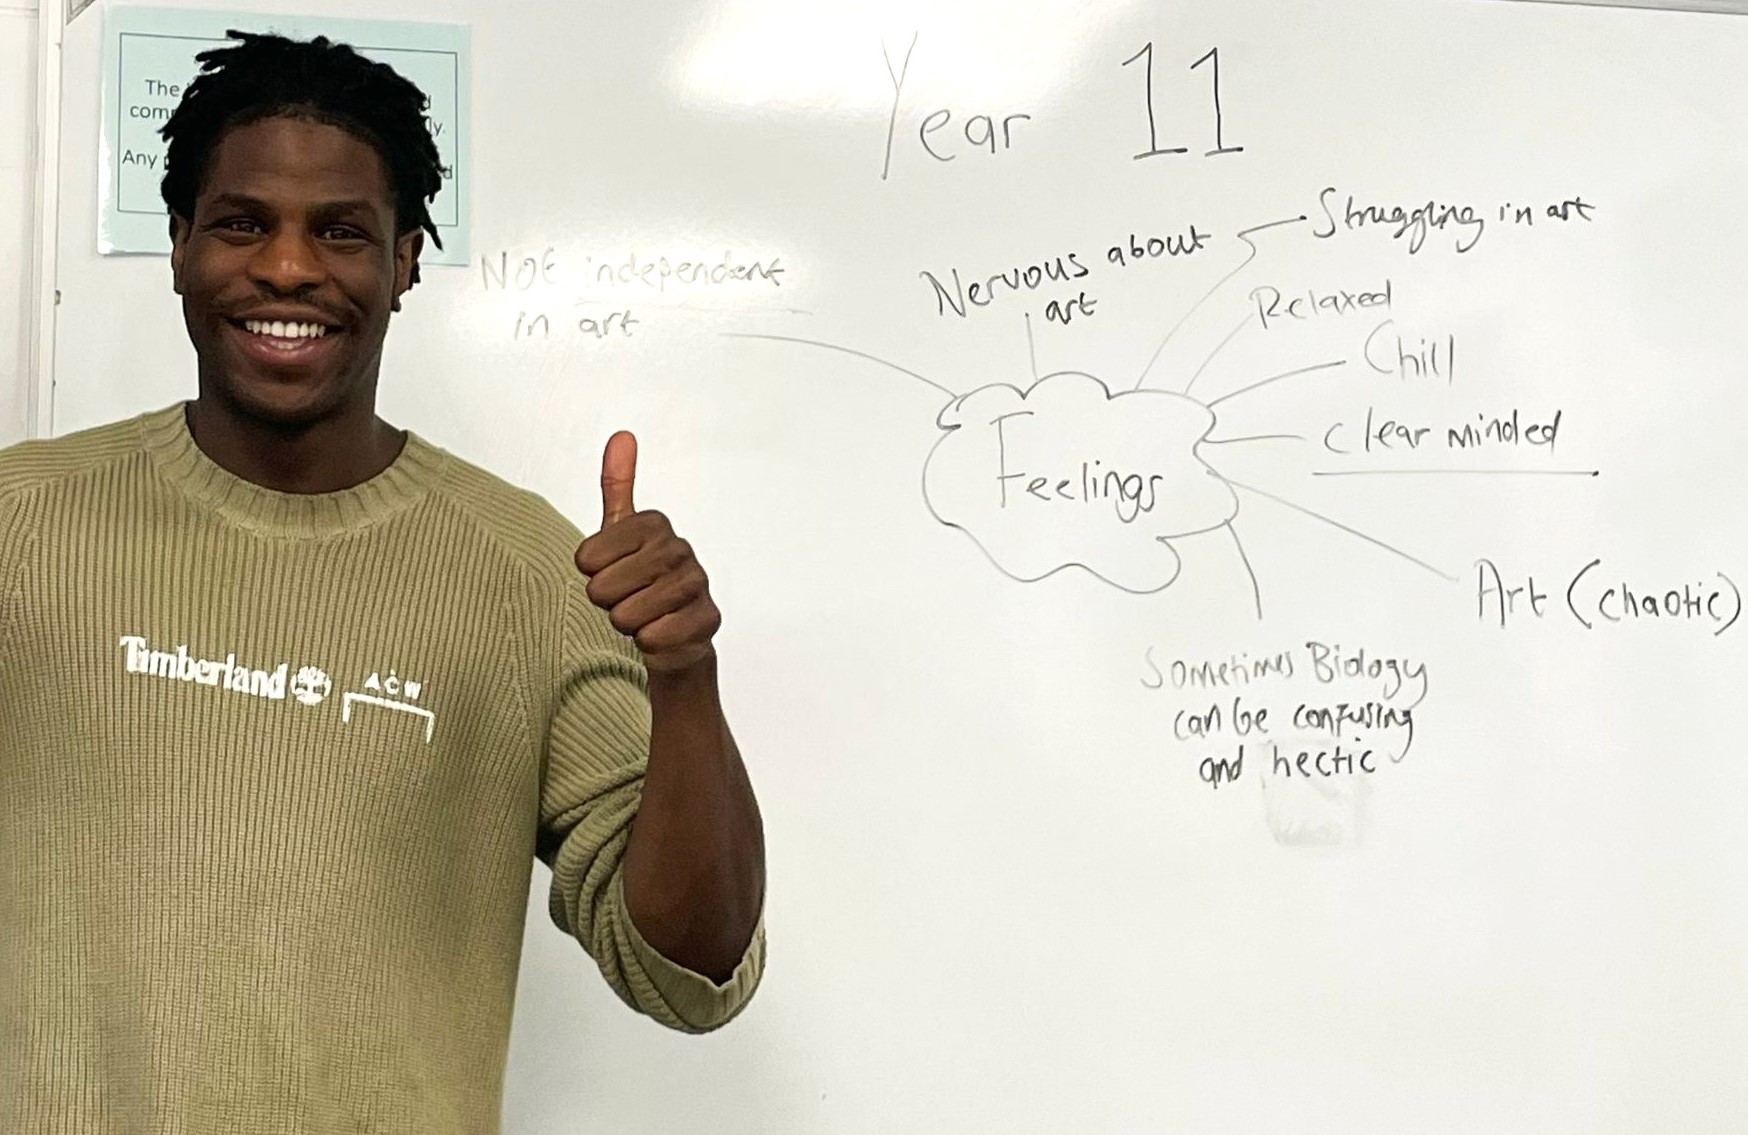 The
com
ly.
Any
Year 11
Struggling in art
Nervous about
art
Not independent
in art
Relaxed
Chill
Clear minded
Feelings
Art (chaotic)
Sometimes Biology
can be confusing
and hectic
Timberland
A C W